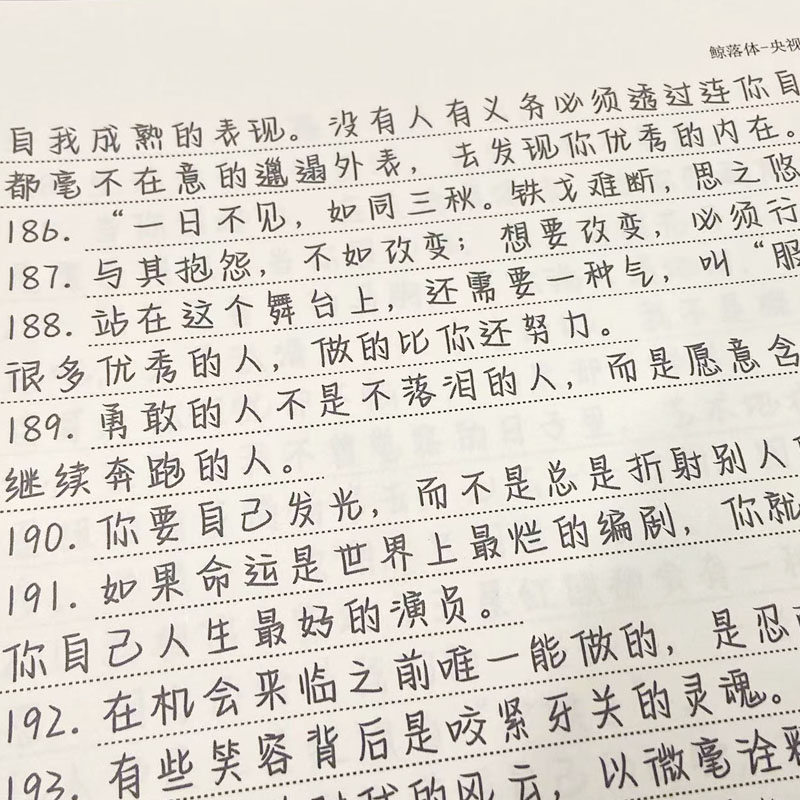 鲸落体-央视
自我成熟的表现。没有人有义务必须透过连你自
都毫不在意的邋遢外表，去发现你优秀的内在。
186. “一日不见，如同三秋。铁戈难断，思之悠
187. 与其抱怨，不如改变；想要改变，必须行
188. 站在这个舞台上，还需要一种气，叫“服
很多优秀的人，做的比你还努力。
189. 勇敢的人不是不落泪的人，而是愿意含
继续奔跑的人。
190. 你要自己发光，而不是总是折射别人
191. 如果命运是世界上最烂的编剧，你就
你自己人生最好的演员。
192. 在机会来临之前唯一能做的，是忍
193. 有些笑容背后是咬紧牙关的灵魂。
我的风云，以微毫诠释